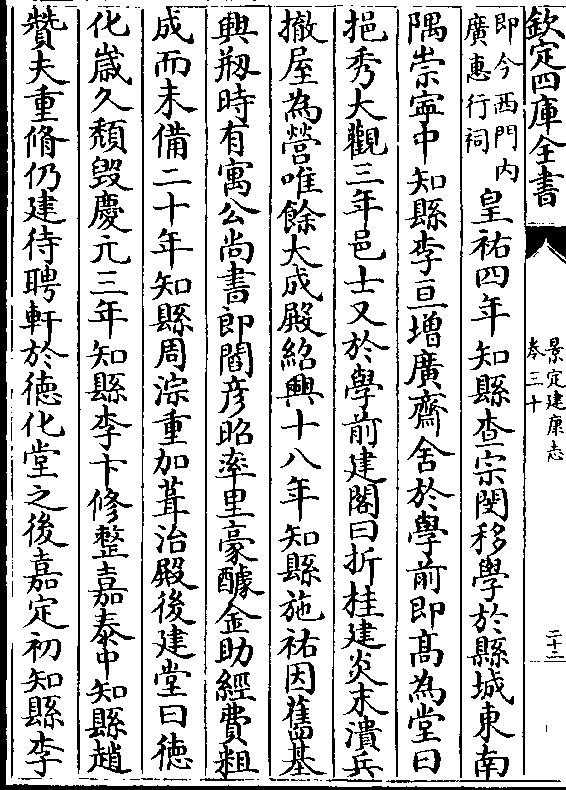 欽定四庫全書
景定建康志
卷三十
二十二
即今西門内
廣惠行祠
皇祐四年知縣查宗閔移學於縣城東南
隅崇寧中知縣李亘增廣齋舍於學前即髙為堂曰
挹秀大觀三年邑士又於學前建閣曰折桂建炎末潰兵
撤屋為營唯餘大成殿紹興十八年知縣施祐因舊基
興剏時有寓公尚書郎閻彦昭率里豪醵金助經費粗
成而未備二十年知縣周淙重加葺治殿後建堂曰徳
化嵗久頽毁慶元三年知縣李卞修整嘉泰中知縣趙
贊夫重脩仍建待聘軒於徳化堂之後嘉定初知縣李